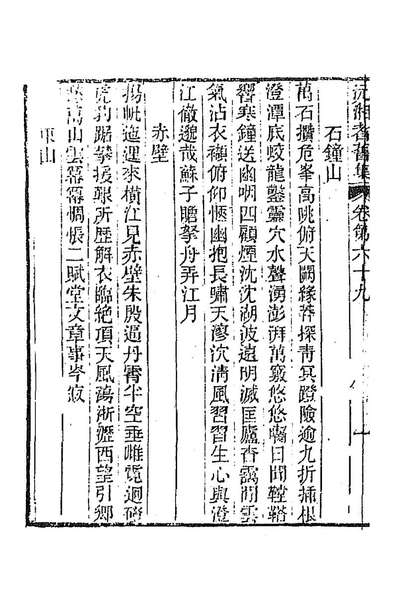 沅湘耆舊集 卷第六十九
石鐘山
萬石攢危峯高眺俯天闕緣莽探靑冥蹬險逾九折插根
澄潭底蛟龍鑿靈穴水聲湧澎湃萬竅悠悠囓日聞鞺鞳
響寒鐘送幽咽四顧煙沈沈湖波遠明滅匡廬杳靄閒雲
氣沾衣襭俯仰愜幽抱長嘯天寥泬淸風習習生心與澄
江徹邈哉蘇子瞻拏舟弄江月
赤壁
揚帆迤邐來橫江見赤壁朱殷逼丹霄半空垂雌霓迴磴
虎豹踞攀援艱所歷解衣臨絶頂天風萬淅瀝西望引鄉
山雲冪冪惆悵二賦堂文章事岑寂
山